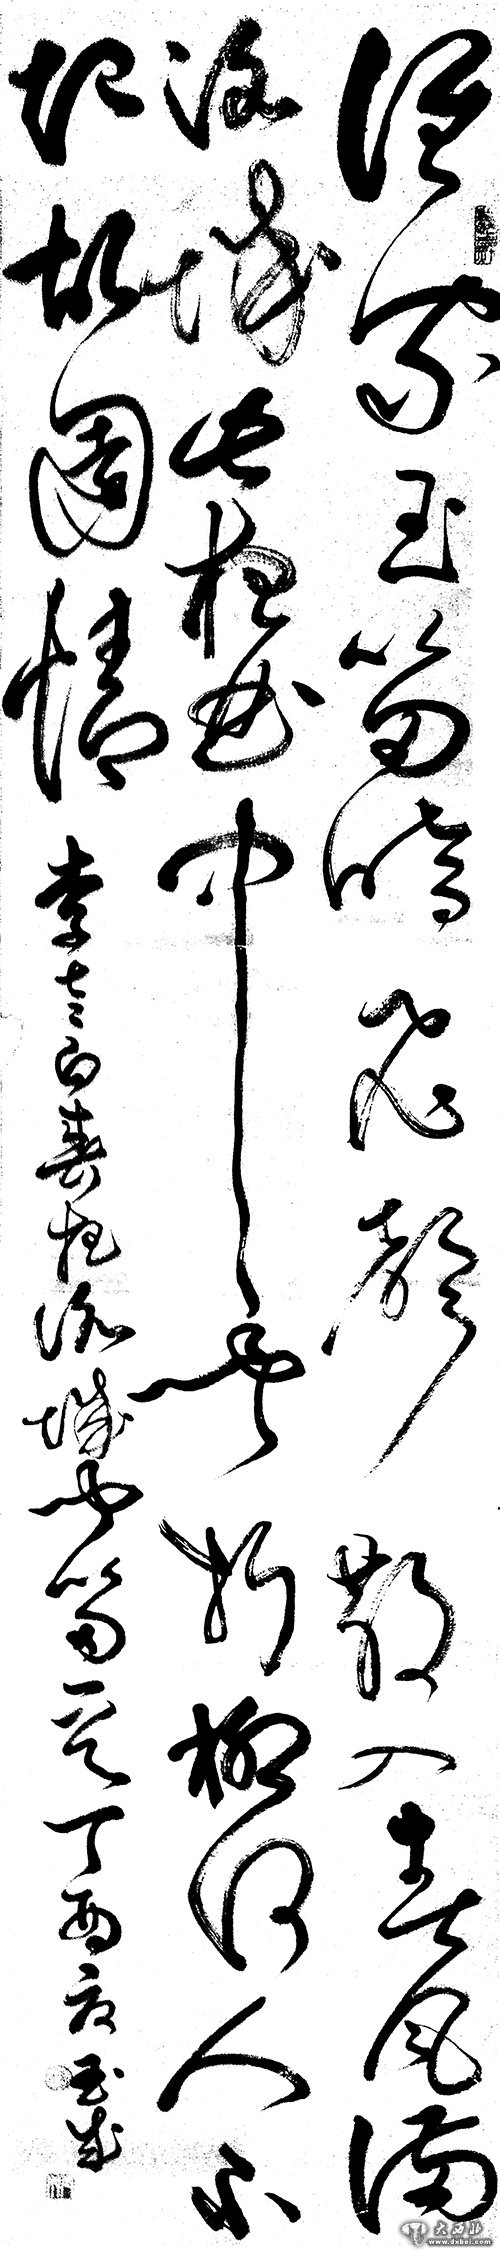 誰家玉笛暗飛聲散入春風滿
洛城此夜曲中聞折柳何人不
起故園情 李太白春夜洛城聞笛 丁酉夏 玉成
大西北
www.dxbei.com